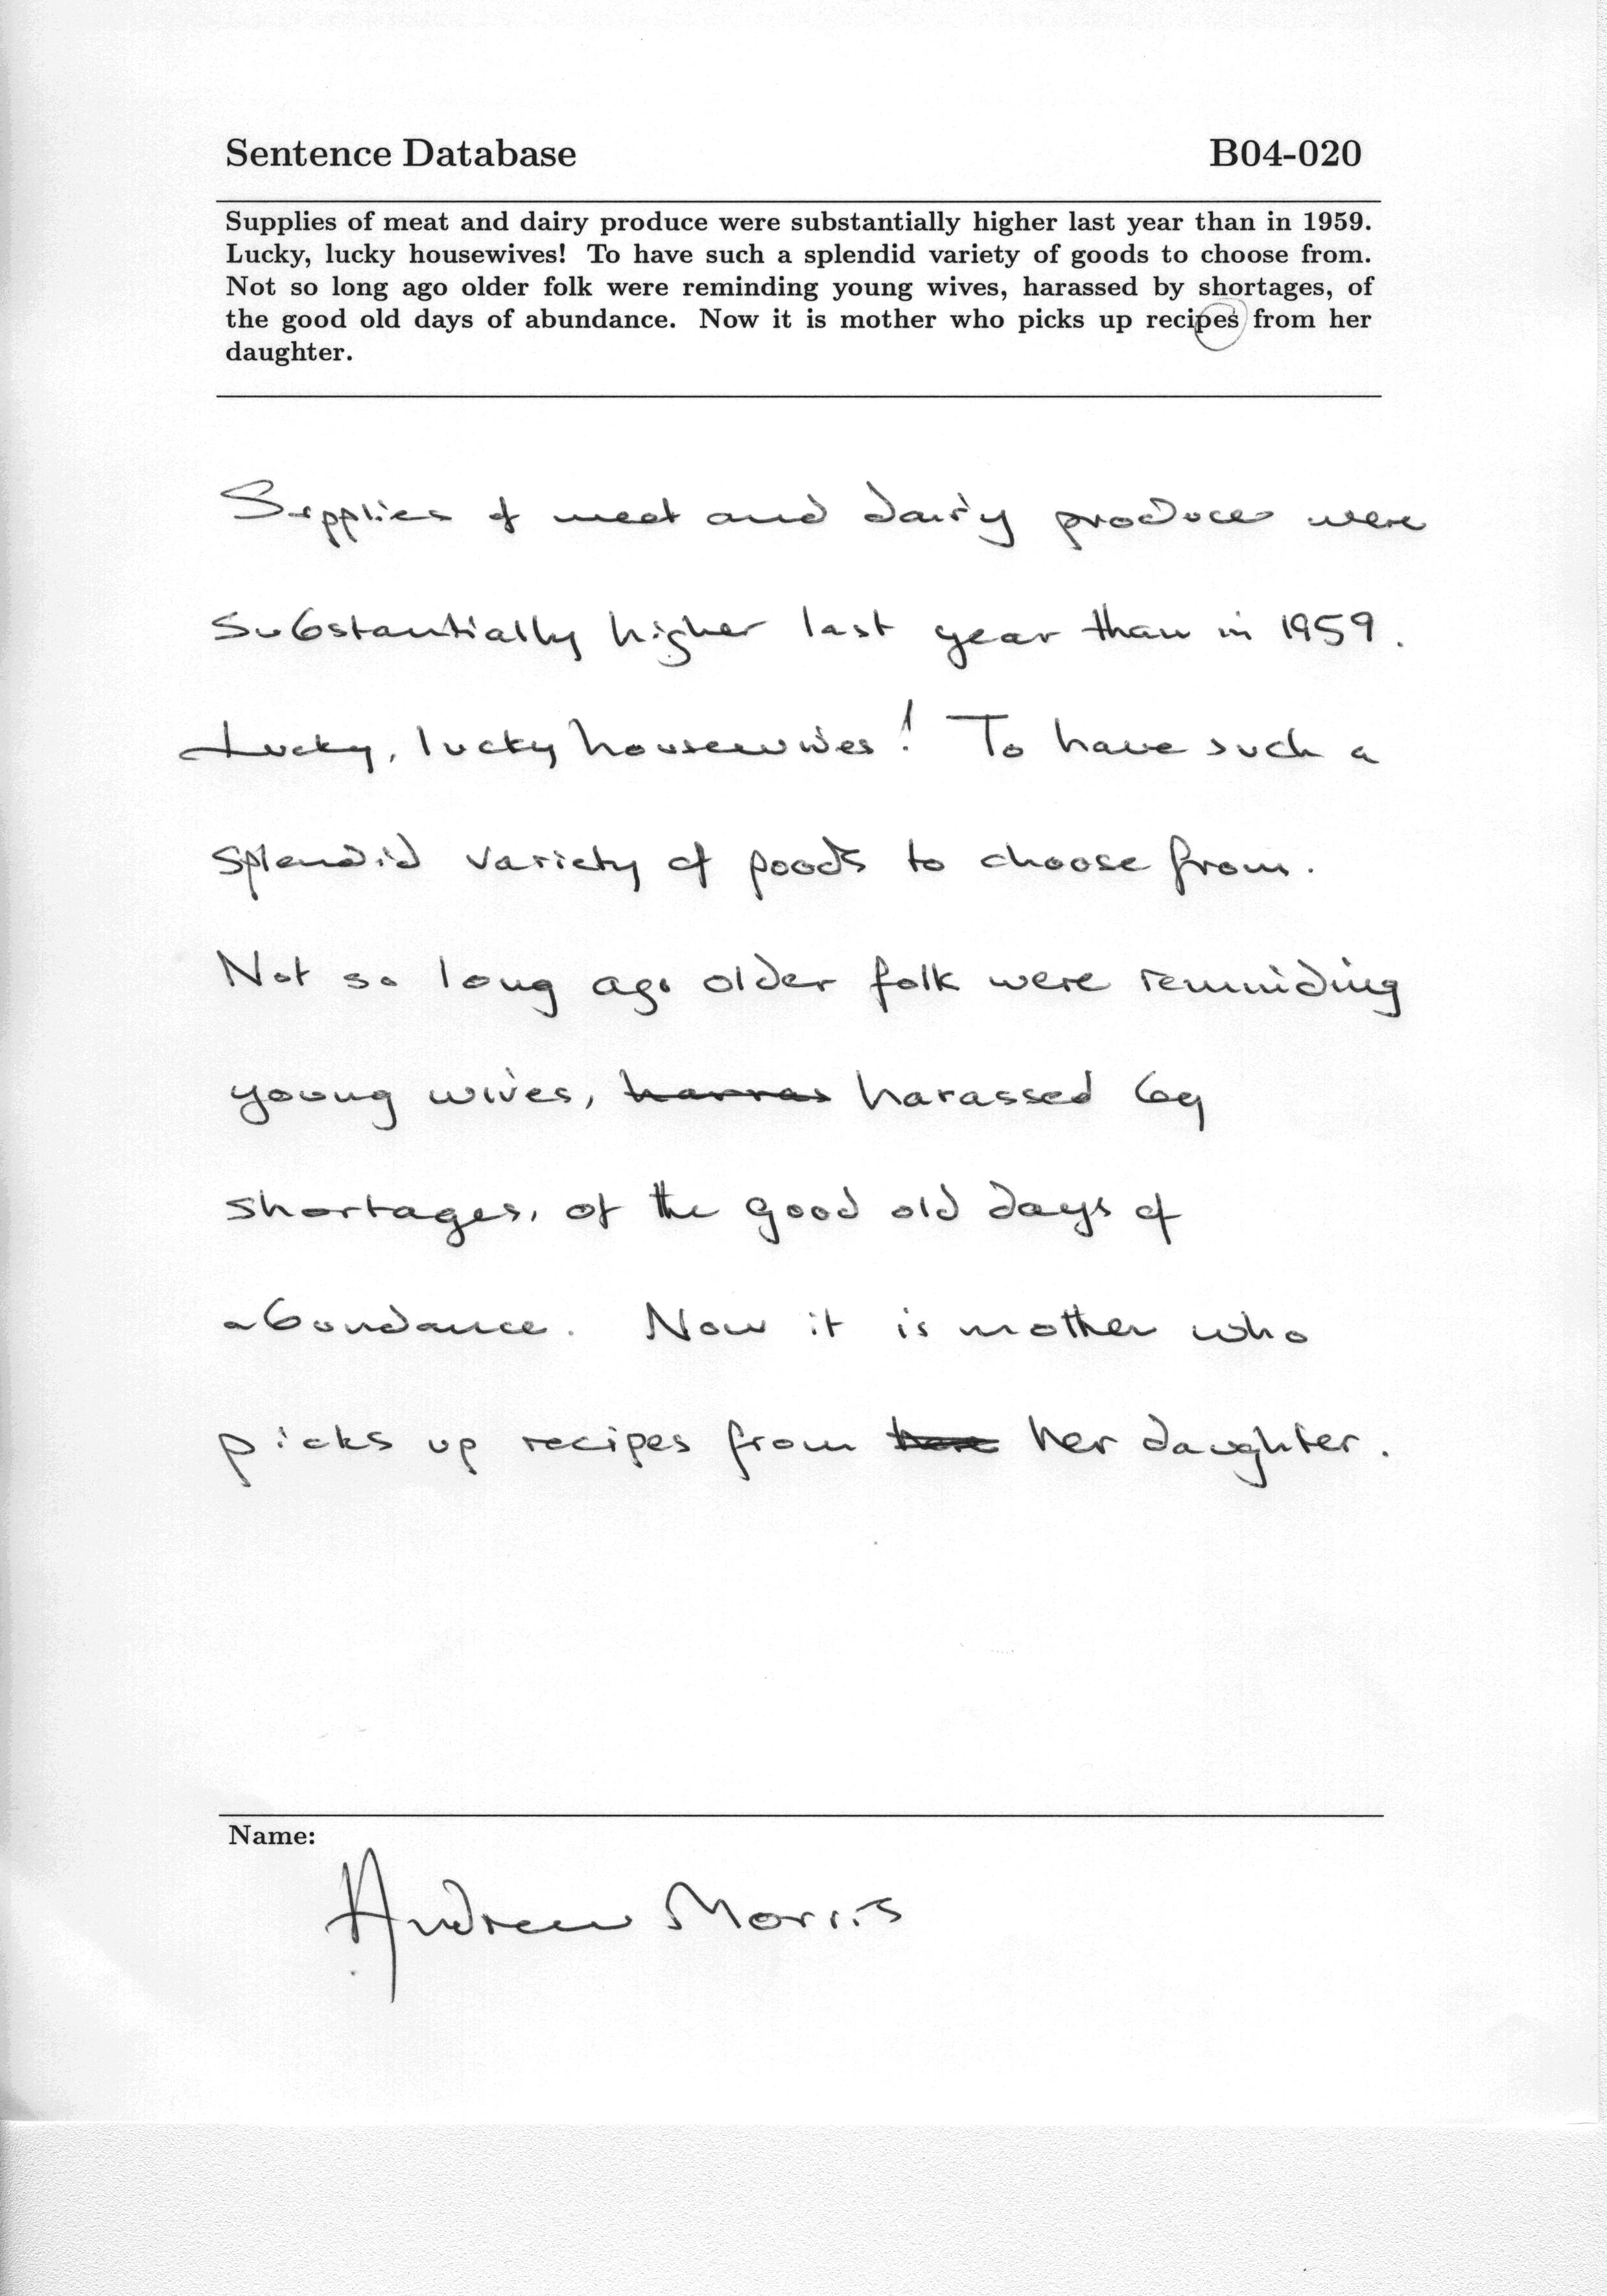 Sentence Database B04-020
Supplies of meat and dairy produce were substantially higher last year than in 1959.
Lucky, lucky housewives! To have such a splendid variety of goods to choose from.
Not so long ago older folk were reminding young wives, harassed by shortages, of
the good old days of abundance. Now it is mother who picks up recipes from her
daughter.
Supplies of meat and dairy produce were
substantially higher last year than in 1959.
Lucky, lucky housewives! To have such a
splendid variety of goods to choose from.
Not so long ago older folk were reminding
young wives, harras harassed by
shortages, of the good old days of
abundance. Now it is mother who
picks up recipes from her daughter.
Name:
Andrew Morris